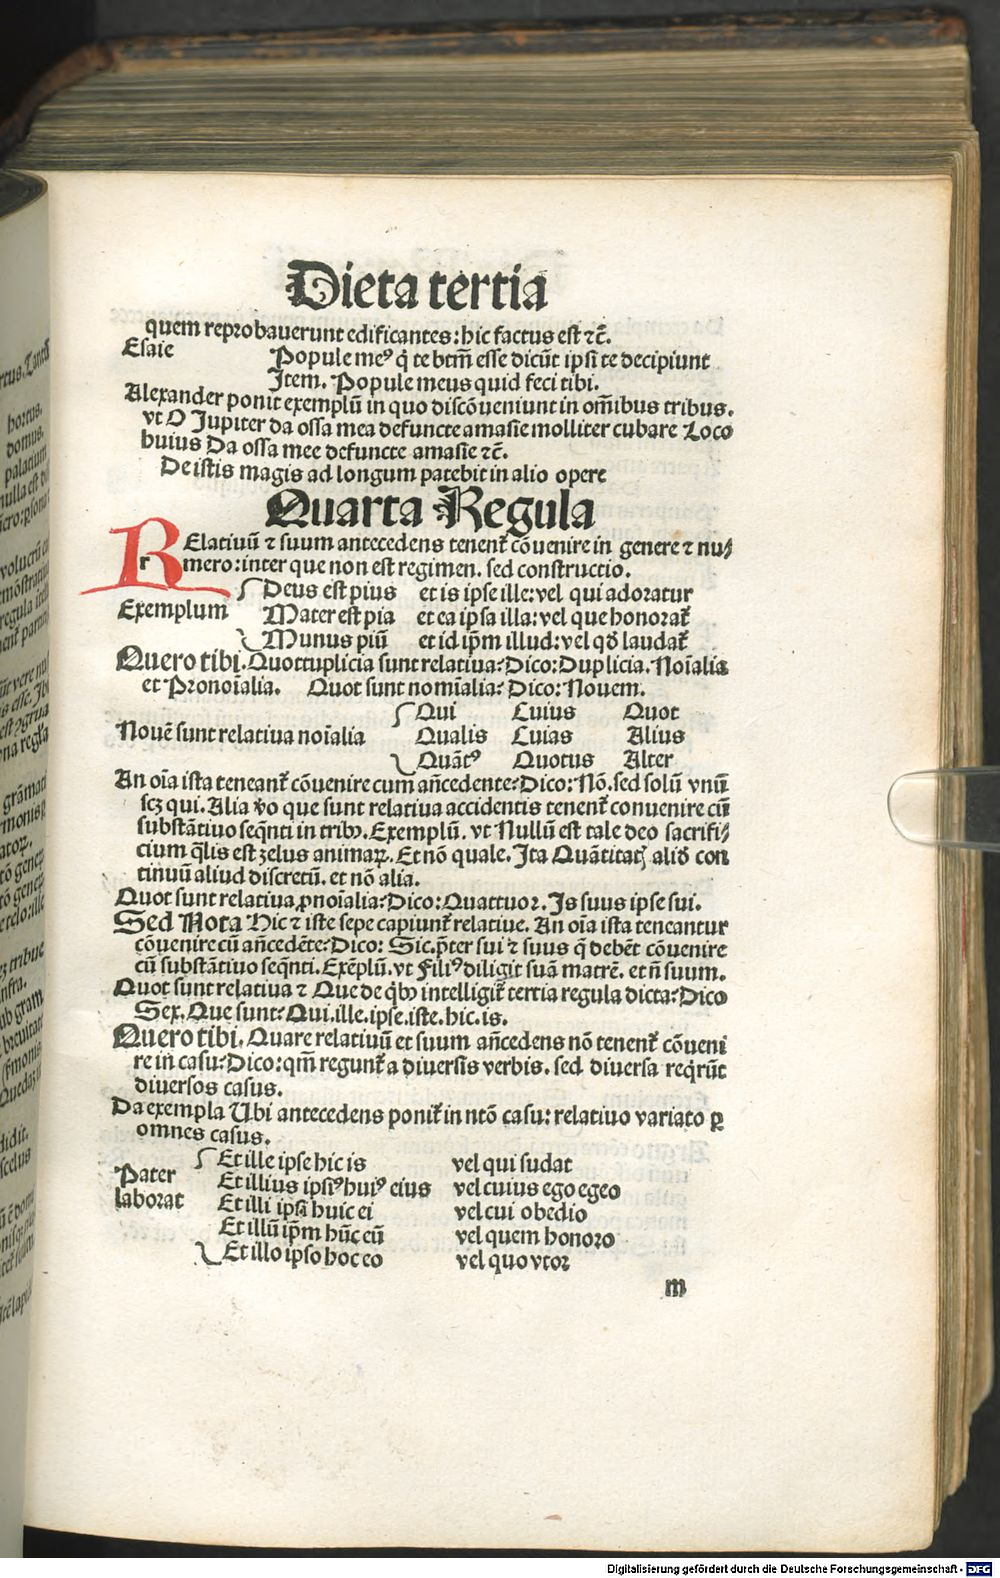 Dieta tertia
quem reprobauerunt edificantes: hic factus est ⁊c̄.
Esaie Popule meꝰ q̇ te btm̄ esse dicūt ipsi te decipiunt
Item. Popule meus quid feci tibi.
Alexander ponit exemplū in quo discōueniunt in om̄ibus tribus.
vt O Jupiter da ossa mea defuncte amasie molliter cubare Loco
huius Da ossa mee defuncte amasie ⁊c̄.
De istis magis ad longum patebit in alio opere
Quarta Regula
RElatiuū ⁊ suum antecedens tenent̄ cōuenire in genere ⁊ nu⸗
mero: inter que non est regimen. sed constructio.
Deus est pius et is ipse ille: vel qui adoratur
Exemplum Mater est pia et ea ipsa illa: vel que honorat̄
Munus piū et id ip̄m illud: vel qd̄ laudat̄
Quero tibi. Quottuplicia sunt relatiua? Dico: Duplicia. Noīalia
et Pronoīalia. Quot sunt nomīalia? Dico: Nouem.
Qui Cuius Quot
Nouē sunt relatiua noīalia Qualis Cuias Alius
Quātꝰ Quotus Alter
An oīa ista teneant̄ cōuenire cum an̄cedente? Dico: Nō. sed solū vnū
scꝫ qui. Alia v̄o que sunt relatiua accidentis tenent̄ conuenire cū
substātiuo seq̄nti in tribꝰ. Exemplū. vt Nullū est tale deo sacrifi⸗
cium q̄lis est zelus animaꝝ. Et nō quale. Ita Quātitatꝭ aliд con
tinuū aliud discretū. et nō alia.
Quot sunt relatiua ꝓnoīalia? Dico: Quattuor. Is suus ipse sui.
Sed Nota Hic ⁊ iste sepe capiunt̄ relatiue. An oīa ista teneantur
cōuenire cū an̄cedēte? Dico: Sic. p̄ter sui ⁊ suus q̄ debēt cōuenire
cū substātiuo seq̄nti. Exēplū. vt Filiꝰ diligit suā matrē. et n̄ suum.
Quot sunt relatiua ⁊ Que de qͥbꝰ intelligit̄ tertia regula dicta? Dico
Sex. Que sunt? Qui. ille. ipse. iste. hic. is.
Quero tibi. Quare relatiuū et suum an̄cedens nō tenent̄ cōueni
re in casu? Dico: qm̄ regunt̄ a diuersis verbis. sed diuersa req̄rūt
diuersos casus.
Da exempla Ubi antecedens ponit̄ in ntō casu: relatiuo variato ꝑ
omnes casus.
Et ille ipse hic is vel qui sudat
Pater Et illius ipsiꝰ huiꝰ eius vel cuius ego egeo
laborat Et illi ipsi huic ei vel cui obedio
Et illū ip̄m hūc eū vel quem honoro
Et illo ipso hoc eo vel quo vtor
m
Digitalisierung gefördert durch die Deutsche Forschungsgemeinschaft - DFG